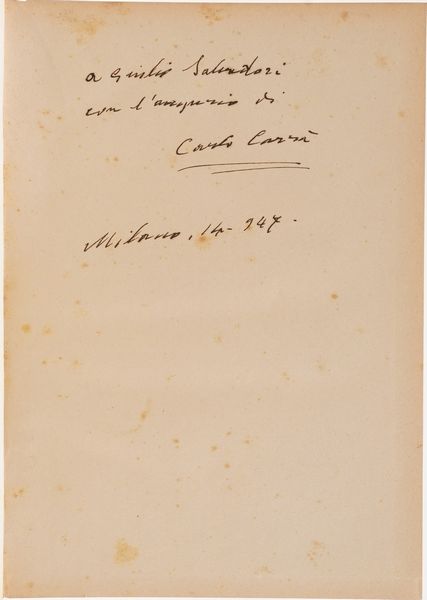 a Giulio Salvadori
con l'augurio di
Carlo Carrà
Milano, 14 - 947 -